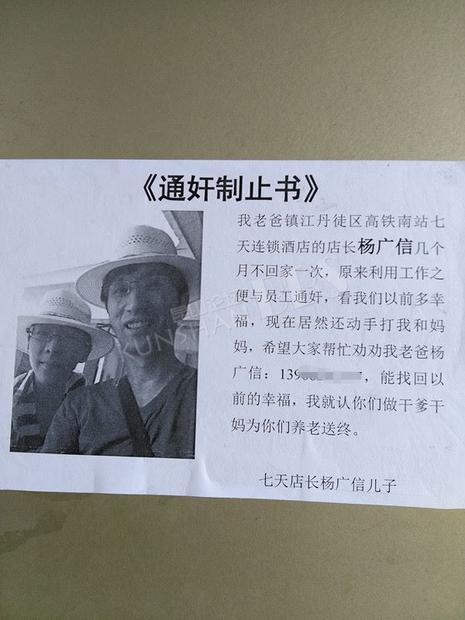 《通奸制止书》
我老爸镇江丹徒区高铁南站七
天连锁酒店的店长杨广信几个
月不回家一次，原来利用工作之
便与员工通奸，看我们以前多幸
福，现在居然还动手打我和妈
妈，希望大家帮忙劝劝我老爸杨
广信：139，能找回以
前的幸福，我就认你们做干爹干
妈为你们养老送终。
七天店长杨广信儿子
KUNSHAN